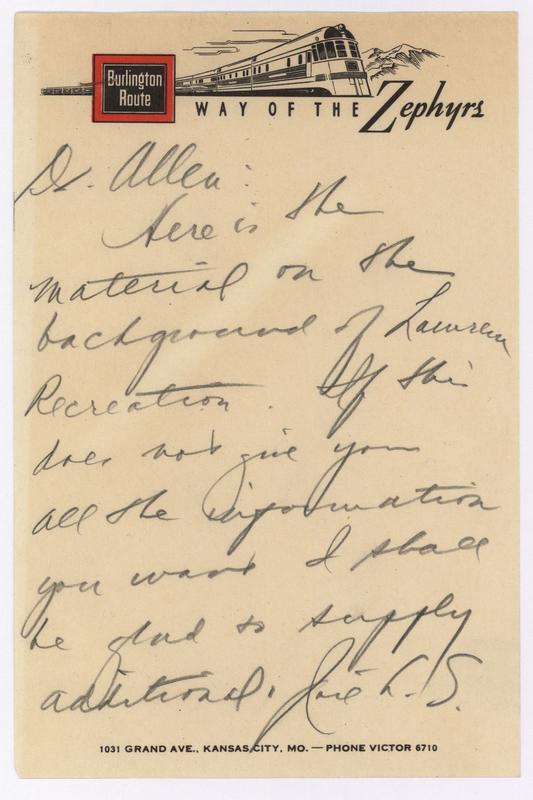 Burlington
Route
WAY OF THE Zephyrs
Dr. Allen:
Here is the
material on the
background of Lawrence
Recreation. If this
does not give you
all the information
you want I shall
be glad to supply
additional.
1031 GRAND AVE., KANSAS CITY, MO. — PHONE VICTOR 6710